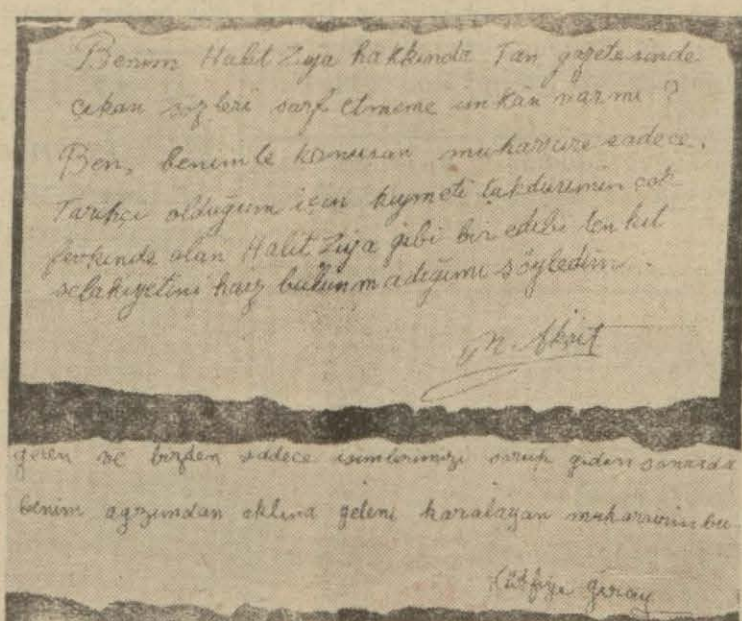 Benim Halit Ziya hakkında Tan gazetesinde
çıkan sözleri sarf etmeme imkân var mı?
Ben, benimle konuşan muharrire sadece,
Tarihçi olduğum için kıymeti takdirimin çok
fevkinde olan Halit Ziya gibi bir edibi tenkit
selahiyetini haiz bulunmadığımı söyledim.
Akşit
gelen ve bizden sadece isimlerimizi sorup giden sonrada
benim ağzımdan aklına geleni karalayan muharririn bu
Lütfiye Giray